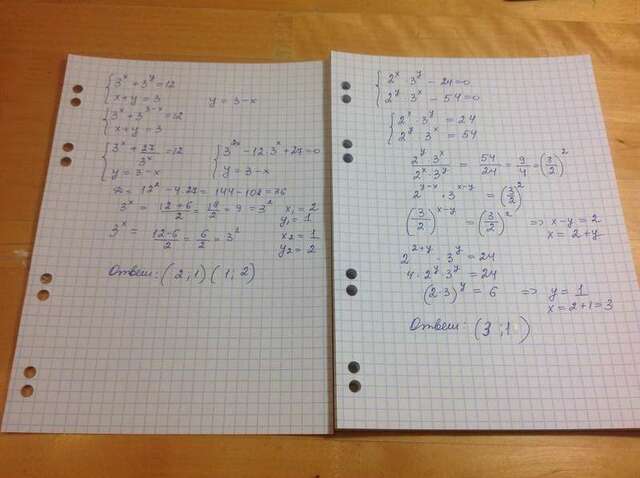 {3^x + 3^y = 12
x + y = 3 y = 3 - x
{3^x + 3^{3-x} = 12
x + y = 3
{3^x + 27/3^x = 12 {3^{2x} - 12·3^x + 27 = 0
y = 3 - x y = 3 - x
D = 12² - 4·27 = 144 - 108 = 36
3^x = (12+6)/2 = 18/2 = 9 = 3² x₁ = 2
y₁ = 1
3^x = (12-6)/2 = 6/2 = 3¹ x₂ = 1
y₂ = 2
Ответ: (2;1) (1;2)
{2^x · 3^y - 24 = 0
2^y · 3^x - 54 = 0
{2^x · 3^y = 24
2^y · 3^x = 54
(2^y · 3^x)/(2^x · 3^y) = 54/24 = 9/4 = (3/2)²
2^{y-x} · 3^{x-y} = (3/2)²
(3/2)^{x-y} = (3/2)² ⇒ x - y = 2
x = 2 + y
2^{2+y} · 3^y = 24
4 · 2^y · 3^y = 24
(2·3)^y = 6 ⇒ y = 1
x = 2 + 1 = 3
Ответ: (3;1)